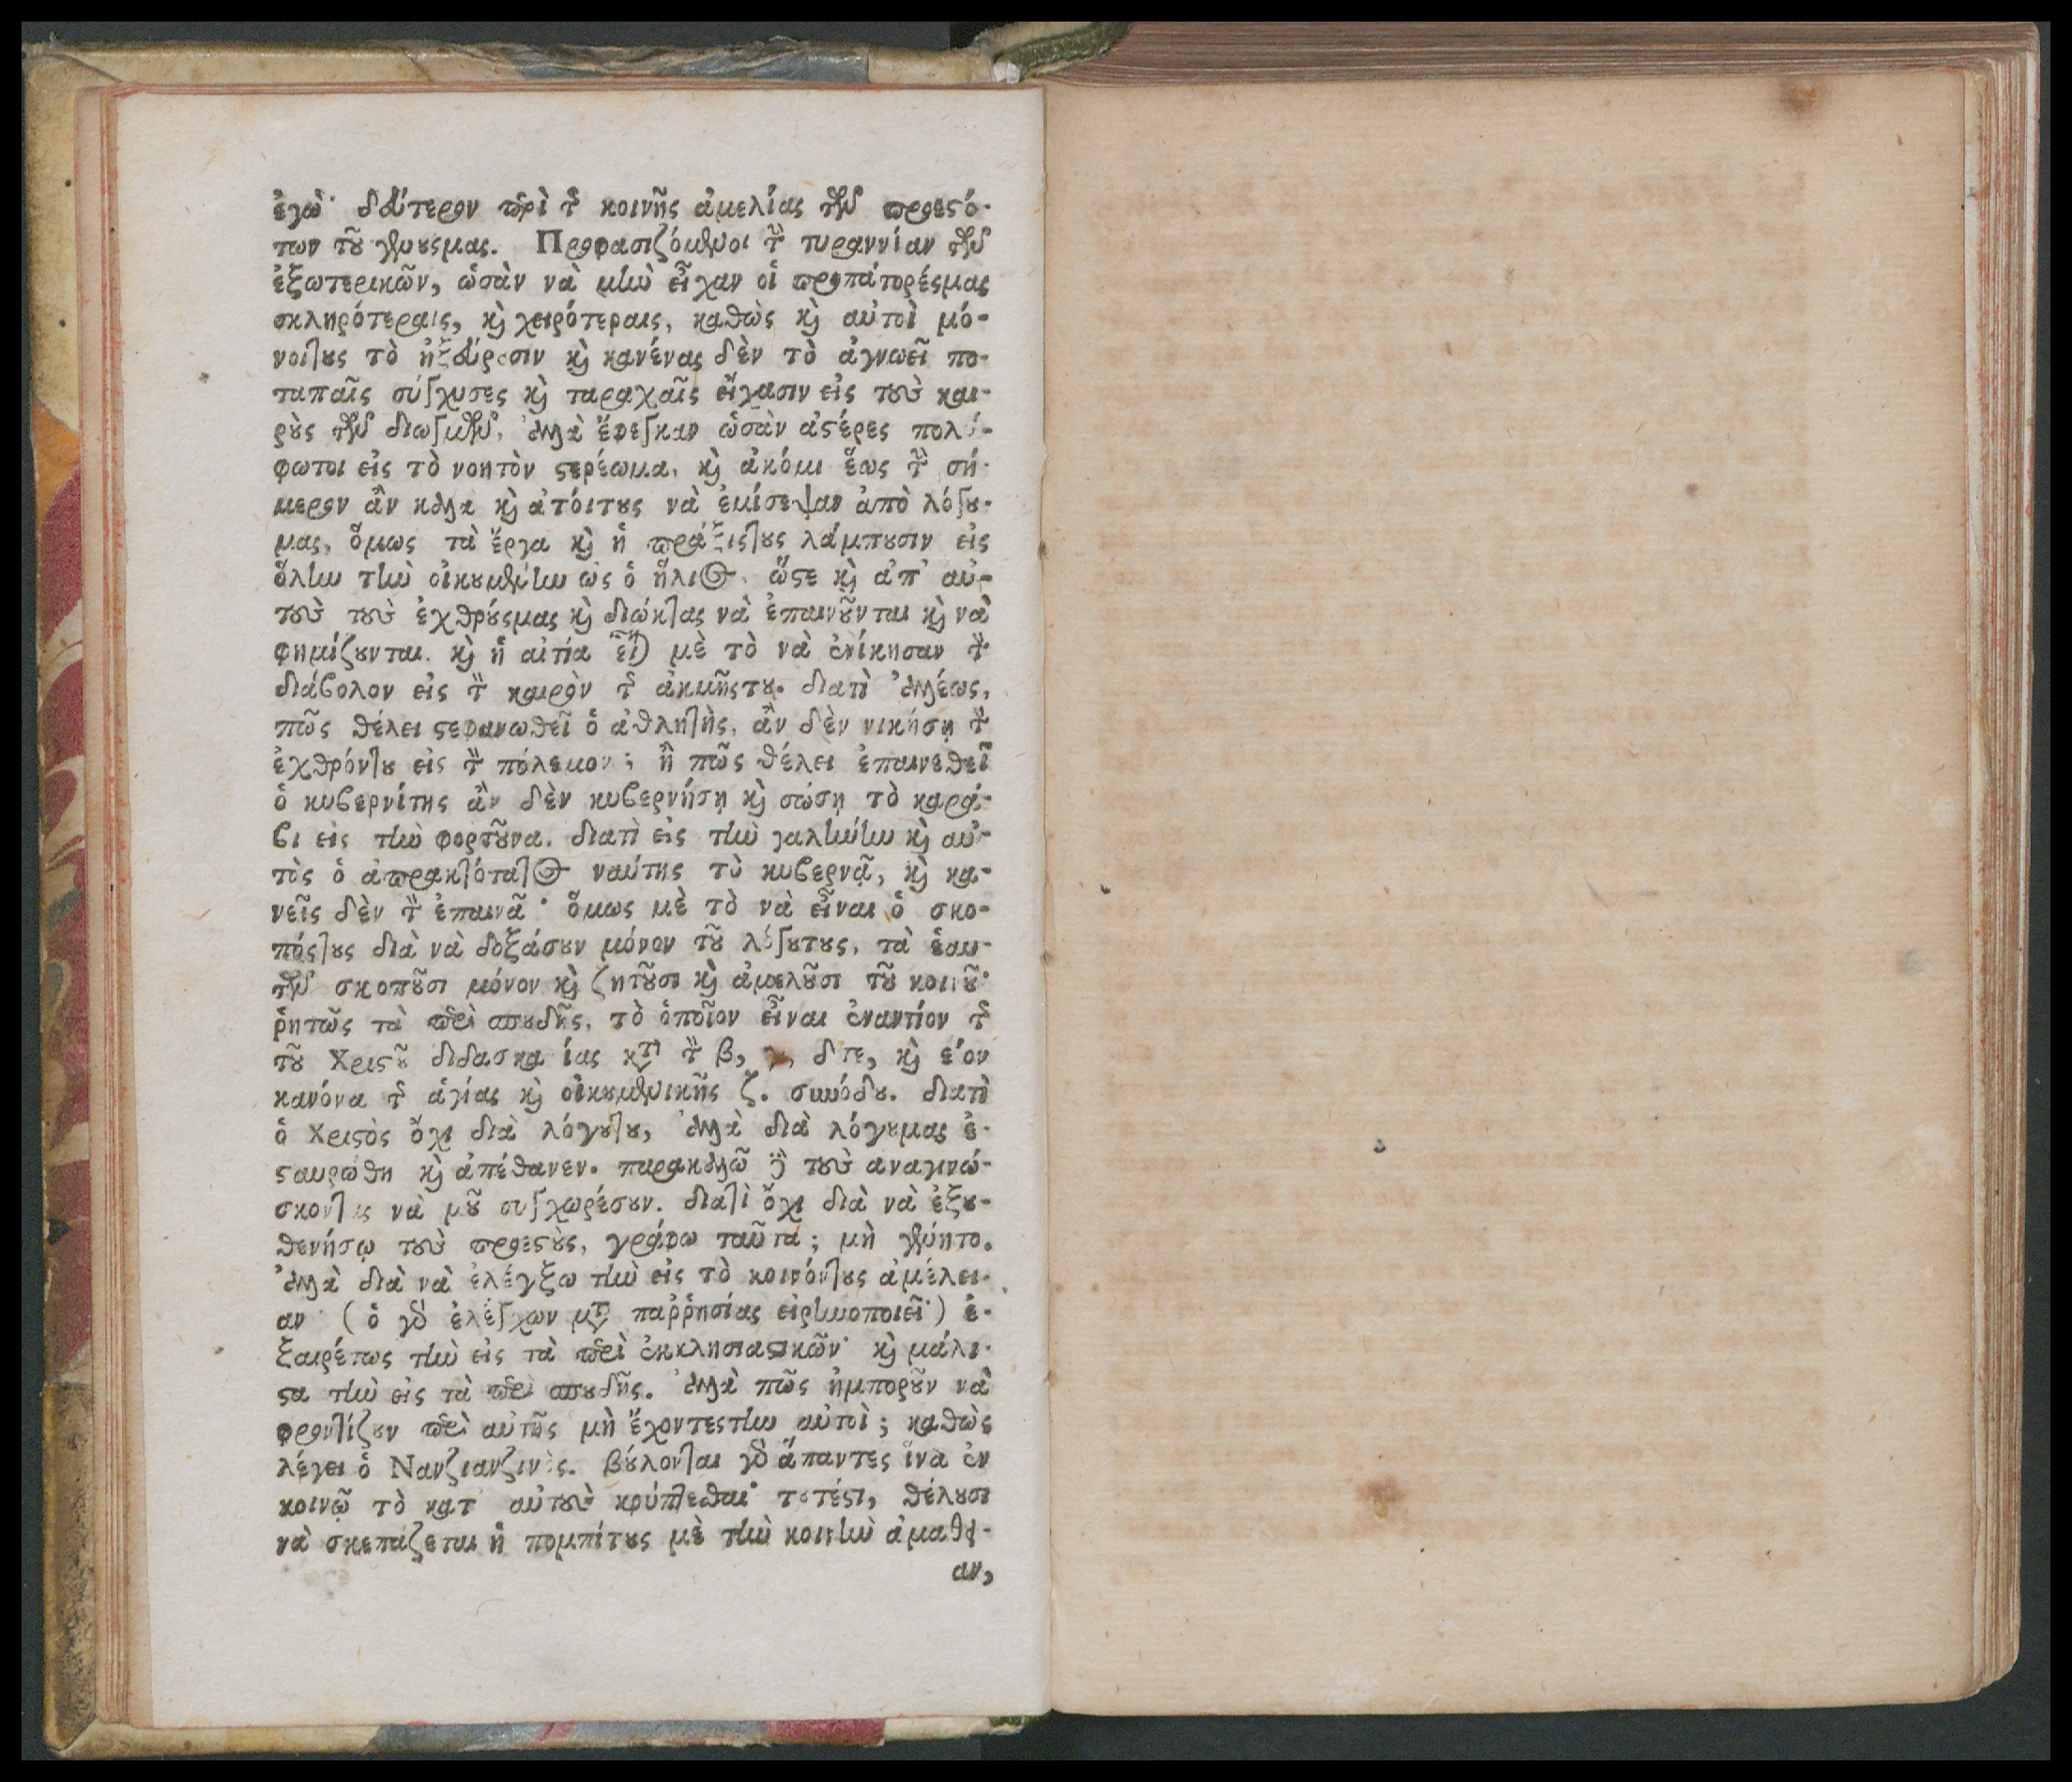 ἐγώ· δεύτερον περὶ τῆς κοινῆς ἀμελίας τῶν προεστό-
των τοῦ γένουςμας. Προφασιζόμενοι τὴν τυραννίαν τῶν
ἐξωτερικῶν, ὡσὰν νὰ μὴν εἶχαν οἱ προπάτορέςμας
σκληρότεραις, καὶ χειρότεραις, καθὼς καὶ αὐτοὶ μό-
νοιτους τὸ ἠξεύρουσιν καὶ κανένας δὲν τὸ ἀγνωεῖ πο-
ταπαῖς σύγχυσες καὶ ταραχαῖς εἴχασιν εἰς τοὺς και-
ροὺς τῶν διωγμῶν, ἀλλὰ ἔφεγκαν ὡσὰν ἀστέρες πολύ-
φωτοι εἰς τὸ νοητὸν στερέωμα, καὶ ἀκόμι ἕως τὴν σή-
μερον ἂν καλα καὶ ἀτόιτους νὰ ἐμίσεψαν ἀπὸ λόγου-
μας, ὅμως τὰ ἔργα καὶ ἡ πράξιςτους λάμπουσιν εἰς
ὅλην τὴν οἰκουμένην ὡς ὁ ἥλιος. ὥστε καὶ ἀπ' αὐ-
τοὺς τοὺς ἐχθρούςμας καὶ διώκτας νὰ ἐπαινοῦνται καὶ νὰ
φημίζουνται. καὶ ἡ αἰτία εἶναι μὲ τὸ νὰ ἐνίκησαν τὸν
διάβολον εἰς τὸν καιρὸν τῆς ἀκμῆςτου. διατὶ ἀλλέως,
πῶς θέλει στεφανωθεῖ ὁ ἀθλητὴς, ἂν δὲν νικήσῃ τὸν
ἐχθρόντου εἰς τὸν πόλεμον; ἢ πῶς θέλει ἐπαινεθεῖ
ὁ κυβερνίτης ἂν δὲν κυβερνήσῃ καὶ σώσῃ τὸ καρά-
βι εἰς τὴν φορτοῦνα. διατὶ εἰς τὴν γαλήνην καὶ αὐ-
τὸς ὁ ἀπρακτότατος ναύτης τὸ κυβερνᾷ, καὶ κα-
νεῖς δὲν τὸν ἐπαινᾶ· ὅμως μὲ τὸ νὰ εἶναι ὁ σκο-
πόςτους διὰ νὰ δοξάσουν μόνον τοῦ λόγουτους, τὰ ἑαυ-
τῶν σκοποῦσι μόνον καὶ ζητοῦσι καὶ ἀμελοῦσι τοῦ κοινοῦ·
ῥητῶς τὰ περὶ σπουδῆς, τὸ ὁποῖον εἶναι ἐναντίον τῆς
τοῦ Χριστοῦ διδασκα ίας κατὰ τὸν β, γ, δτε, καὶ
κανόνα τῆς ἁγίας καὶ οἰκουμενικῆς ζ. συνόδου. διατὶ
ὁ Χριστὸς ὄχι διὰ λόγουτου, ἀλλὰ διὰ λόγουμας ἐ-
σταυρώθη καὶ ἀπέθανεν. παρακαλῶ δὲ τοὺς αναγινώ-
σκοντας νὰ μοῦ συγχωρέσουν. διατὶ ὄχι διὰ νὰ ἐξου-
θενήσω τοὺς προεστοὺς, γράφω ταῦτα; μὴ γένοιτο.
ἀλλὰ διὰ νὰ ἐλέγξω τὴν εἰς τὸ κοινόντους ἀμέλει-
αν (ὁ γὰρ ἐλέγχων μετὰ παῤῥησίας εἰρηνοποιεῖ·) ἐ-
ξαιρέτως τὴν εἰς τὰ περὶ ἐκκλησιαστικῶν· καὶ μάλι-
στα τὴν εἰς τὰ περὶ σπουδῆς. ἀλλὰ πῶς ἠμποροῦν νὰ
φροντίζουν περὶ αὐτῆς μὴ ἔχοντεςτην αὐτοί; καθὼς
λέγει ὁ Νανζιανζινός. βούλονται γὰρ ἅπαντες ἵνα ἐν
κοινῷ τὸ κατ αὐτοὺς κρύπτεσθαι· τουτέστι, θέλουσι
νὰ σκεπάζεται ἡ πομπίτους μὲ τὴν κοινὴν ἀμαθί-
αν,